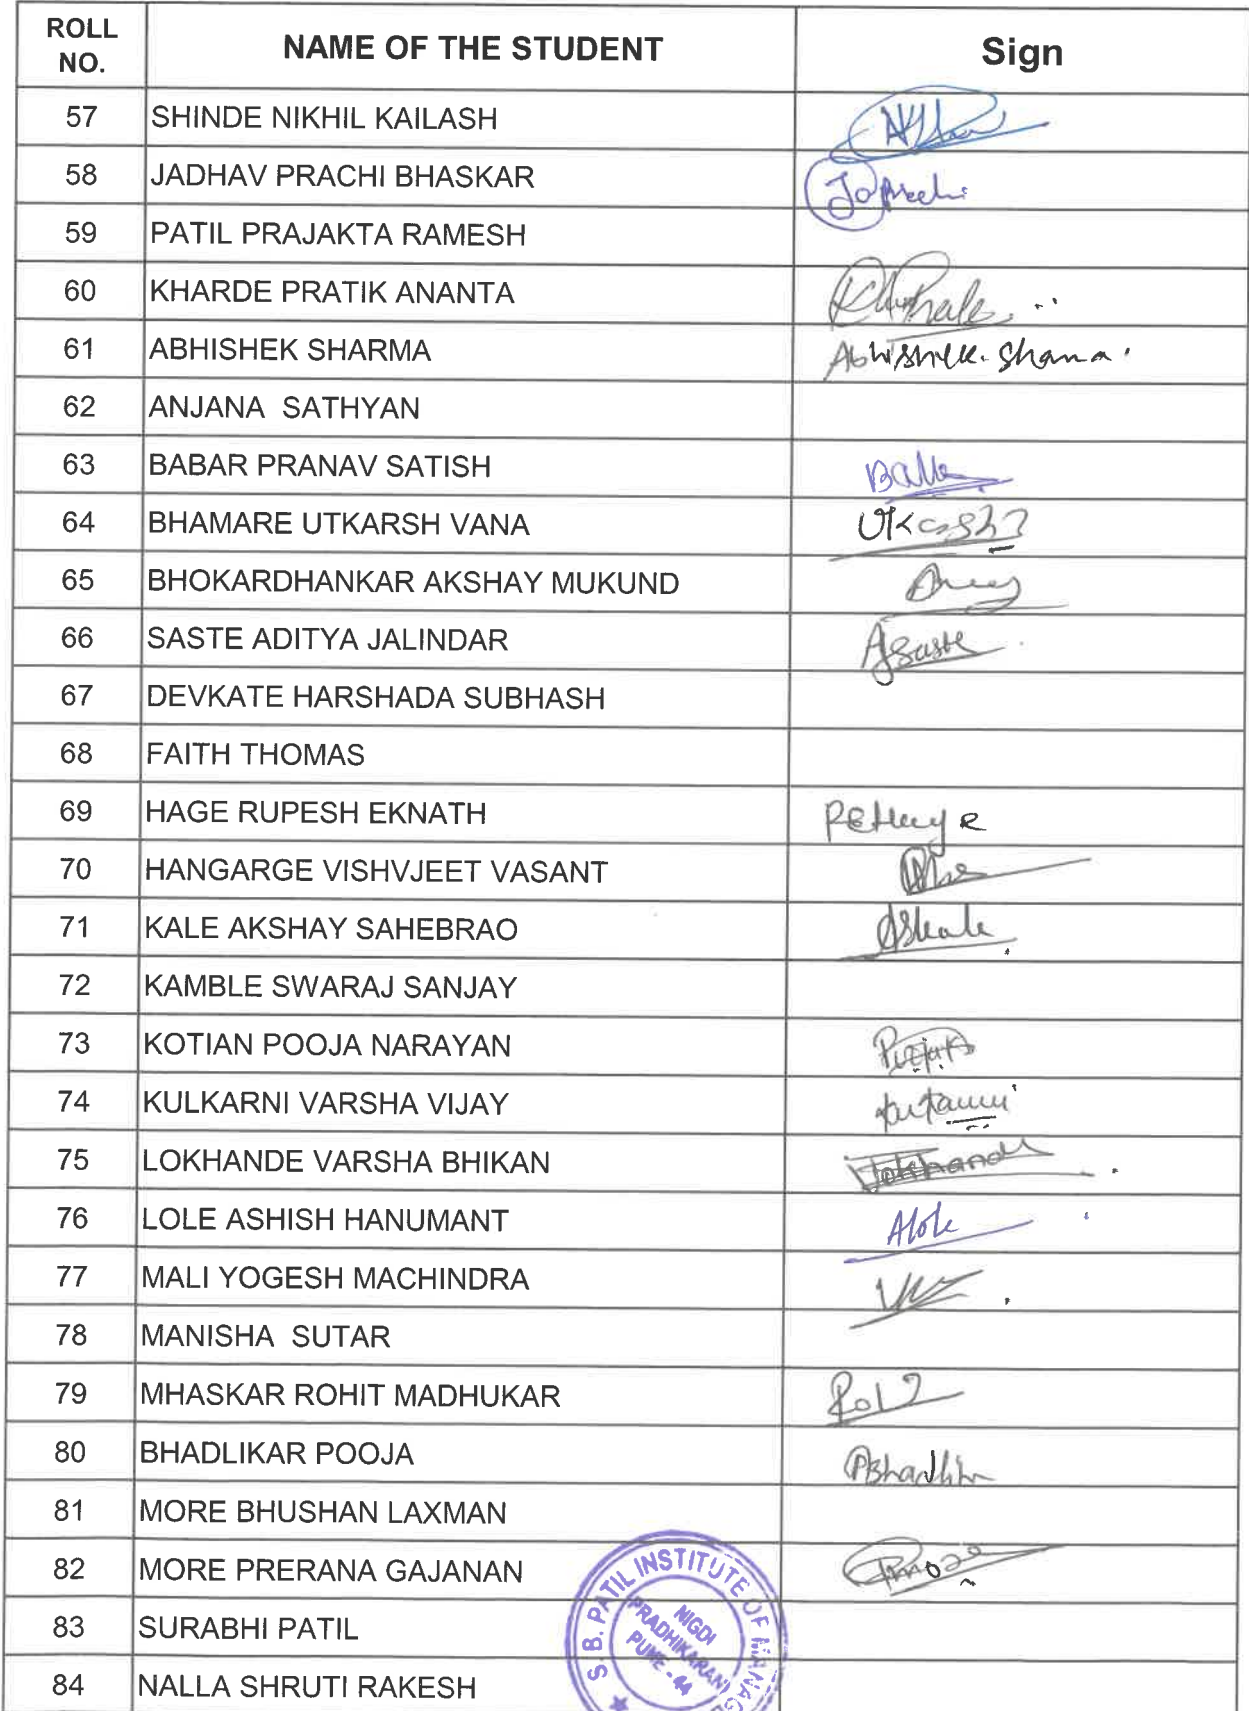 ROLL NO. NAME OF THE STUDENT Sign
57 SHINDE NIKHIL KAILASH
58 JADHAV PRACHI BHASKAR
59 PATIL PRAJAKTA RAMESH
60 KHARDE PRATIK ANANTA
61 ABHISHEK SHARMA Abhishek. Sharma.
62 ANJANA SATHYAN
63 BABAR PRANAV SATISH
64 BHAMARE UTKARSH VANA
65 BHOKARDHANKAR AKSHAY MUKUND
66 SASTE ADITYA JALINDAR ASaste
67 DEVKATE HARSHADA SUBHASH
68 FAITH THOMAS
69 HAGE RUPESH EKNATH
70 HANGARGE VISHVJEET VASANT
71 KALE AKSHAY SAHEBRAO ASkale
72 KAMBLE SWARAJ SANJAY
73 KOTIAN POOJA NARAYAN
74 KULKARNI VARSHA VIJAY
75 LOKHANDE VARSHA BHIKAN
76 LOLE ASHISH HANUMANT Alole
77 MALI YOGESH MACHINDRA
78 MANISHA SUTAR
79 MHASKAR ROHIT MADHUKAR
80 BHADLIKAR POOJA
81 MORE BHUSHAN LAXMAN
82 MORE PRERANA GAJANAN
83 SURABHI PATIL
84 NALLA SHRUTI RAKESH
S. B. PATIL INSTITUTE OF
NIGDI
PRADHIKARAN
PUNE - 44